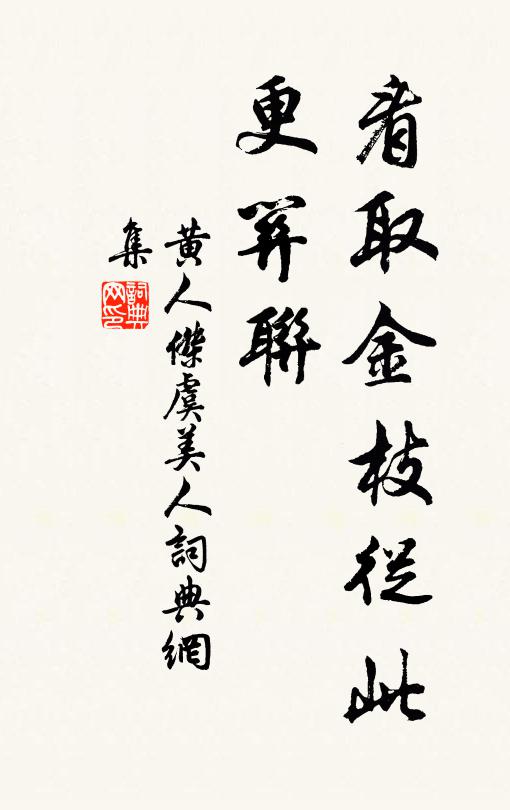 看取金枝從此
更笄聯
黃人傑虞美人詞典網
集
詞典
网印